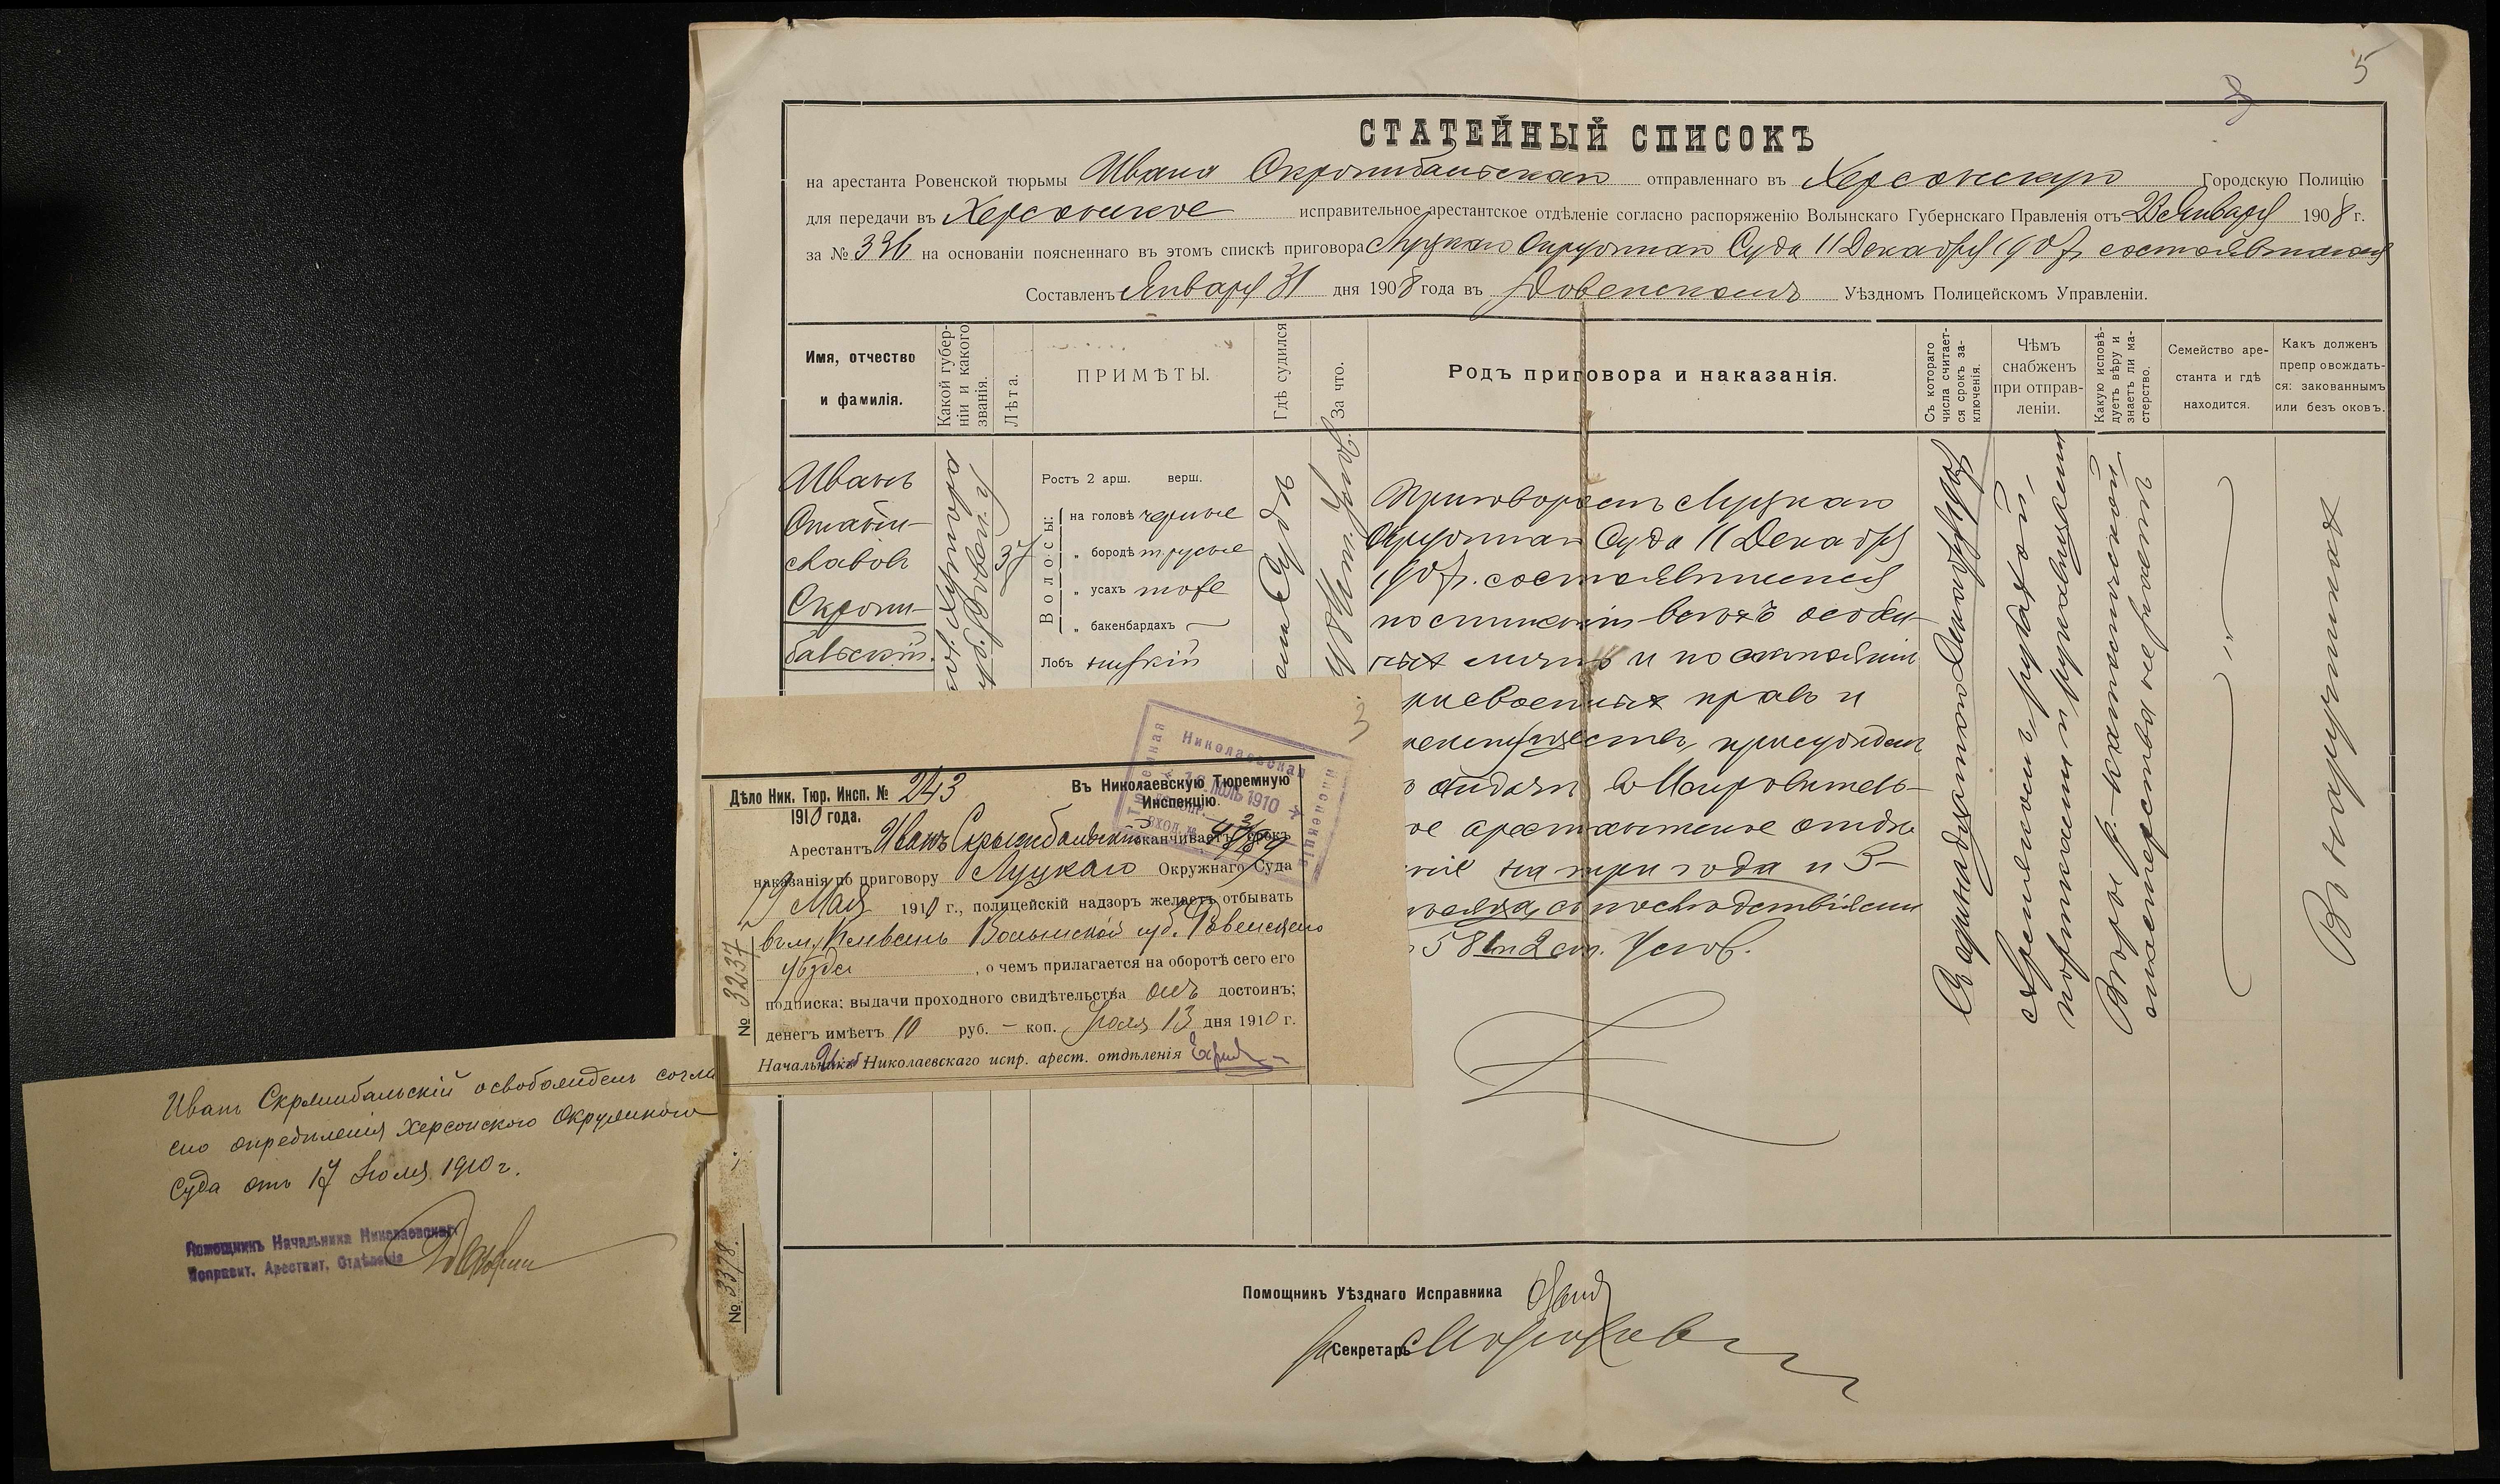 5
СТАТЕЙНЫЙ СПИСОКЪ
на арестанта Ровенской тюрьмы Ивана Скропибальскаго отправленнаго въ Херсонскую Городскую Полицію
для передачи въ Херсонское исправительное арестантское отдѣленіе согласно распоряженію Волынскаго Губернскаго Правленія отъ 23 Января 1908 г.
за № 336 на основаніи поясненнаго въ этомъ спискѣ приговора Луцкаго Окружнаго Суда 11 Декабря 1907 г. состоявшагося
Составленъ Января 31 дня 1908 года въ Ровенскомъ Уѣздномъ Полицейскомъ Управленіи.
Имя, отчество
и фамилія.
Какой губер-
ніи и какого
званія.
Лѣта.
ПРИМѢТЫ.
Гдѣ судился
За что.
Родъ приговора и наказанія.
Съ котораго
числа считает-
ся срокъ за-
ключенія.
Чѣмъ
снабженъ
при отправ-
леніи.
Какую исповѣ-
дуетъ вѣру и
знаетъ ли ма-
стерство.
Семейство аре-
станта и гдѣ
находится.
Какъ долженъ
препровождать-
ся: закованнымъ
или безъ оковъ.
Иванъ
Стани-
славовъ
Скропи-
бальскій.
37
Ростъ 2 арш. верш.
Волосы:
на головѣ черные
„ бородѣ т. русые
„ усахъ тоже
„ бакенбардахъ —
Лобъ низкій
Приговоромъ Луцкаго
Окружнаго Суда 11 Декабря
1907 г. состоявшимся
по лишеніи всѣхъ особен-
ныхъ лично и по состоянію
присвоенныхъ правъ и
преимуществъ, присужденъ
отдачѣ въ Исправитель-
ое арестантское отдѣ
ніе на три года и 3-
мѣсяца, съ послѣдствіями
58 1 и 2 ст. Улож.
Съ одинадцатаго Декабря 1907 г.
Вѣры р.-католической
мастерства не знаетъ
Въ наручникахъ
Помощникъ Уѣзднаго Исправника
Секретарь
3
Николаевская
Тюремная
Инспекція
ІЮЛЬ 1910
Дѣло Ник. Тюр. Инсп. № 243
1910 года.
Въ Николаевскую Тюремную
Инспекцію.
Арестантъ Иванъ Скрынибальскій оканчиваетъ срокъ
наказанія по приговору Луцкаго Окружнаго Суда
19 Мая 1911 г., полицейскій надзоръ желаетъ отбывать
въ м. Клевань Волынской губ. Ровенскаго
уѣзда, о чемъ прилагается на оборотѣ сего его
подписка; выдачи проходного свидѣтельства онъ достоинъ;
денегъ имѣетъ 10 руб. – коп. Іюля 13 дня 1910 г.
Начальникъ Николаевскаго испр. арест. отдѣленія
№ 3237
№ 3378
Иванъ Скрынибальскій освобожденъ согла
сно опредѣленія Херсонского Окружного
Суда отъ 17 Іюля 1910 г.
Помощникъ Начальника Николаевскаго
Исправит. Арестант. Отдѣленія